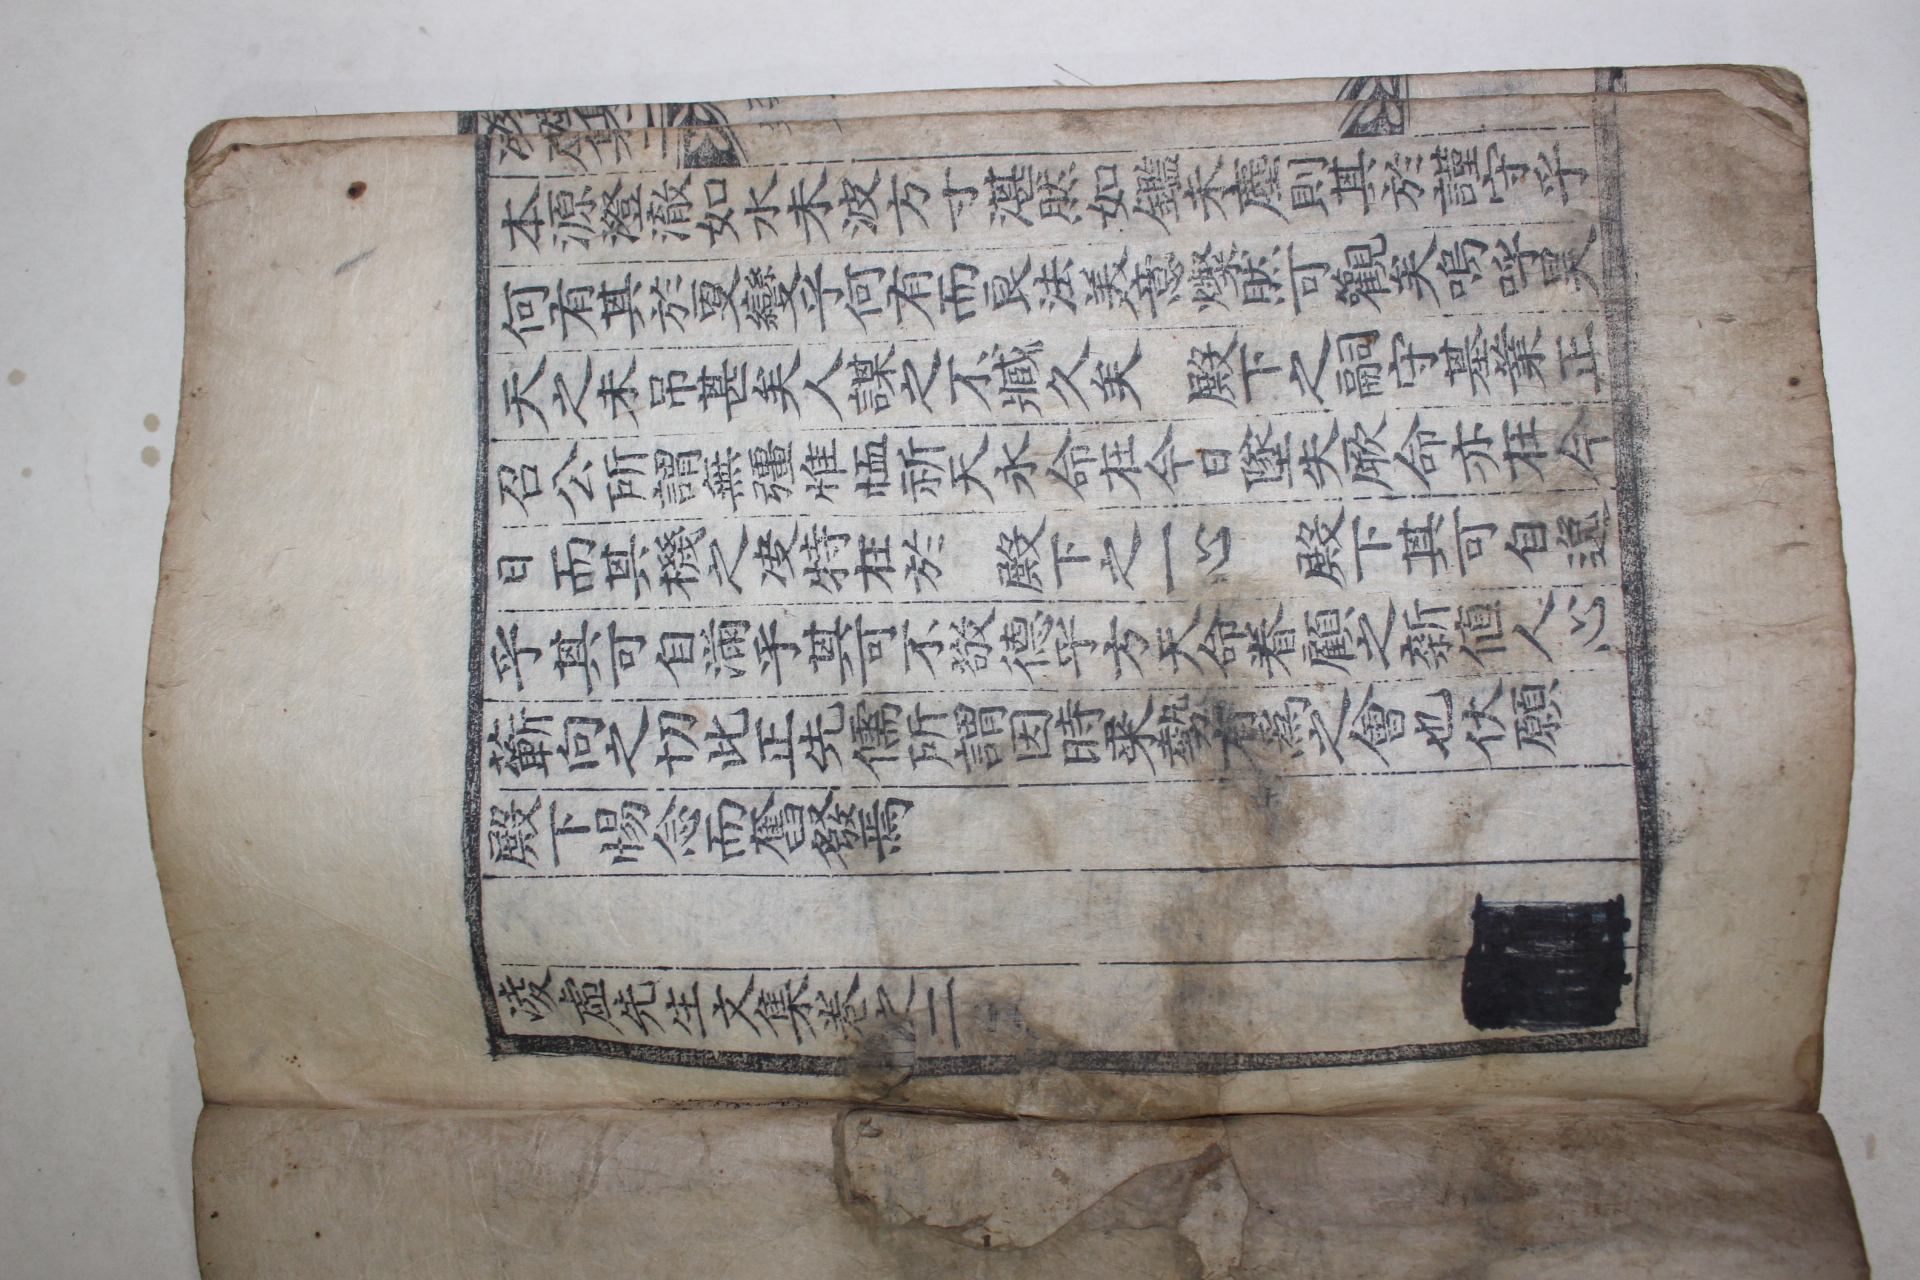 本源澄澈如水未波方寸湛然如鑑未塵則其於謹守乎
何有其於更變乎何有而良法美意燦然可觀矣嗚呼旻
天之未弔甚矣人謀之不臧久矣　殿下之嗣守基業正
召公所謂無疆惟恤祈天永命在今日墜失厥命亦在今
日而其機之决特在於　殿下之一心　殿下其可自逸
乎其可自滿乎其可不敬德乎方天命眷顧之新値人心
蘄向之切此正先儒所謂因時乘勢有爲之會也伏願
殿下惕念而奮發焉
凌虛先生文集卷之二